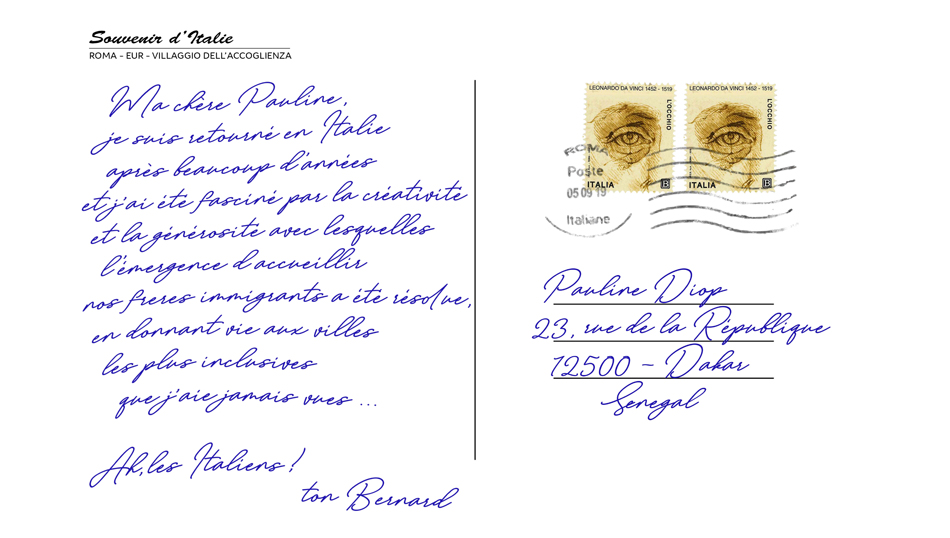 Souvenir d'Italie
ROMA - EUR - VILLAGGIO DELL'ACCOGLIENZA
Ma chère Pauline,
je suis retourné en Italie
après beaucoup d'années
et j'ai été fasciné par la créativité
et la générosité avec lesquelles
l'émergence d'accueillir
nos freres immigrants a été résolue,
en donnant vie aux villes
les plus inclusives
que j'aie jamais vues ...
Ah, les Italiens!
ton Bernard
LEONARDO DA VINCI 1452 - 1519
L'OCCHIO
ITALIA B
LEONARDO DA VINCI 1452 - 1519
L'OCCHIO
ITALIA B
ROMA
Poste
05 09 19
Italiane
Pauline Diop
23, rue de la République
12500 - Dakar
Senegal